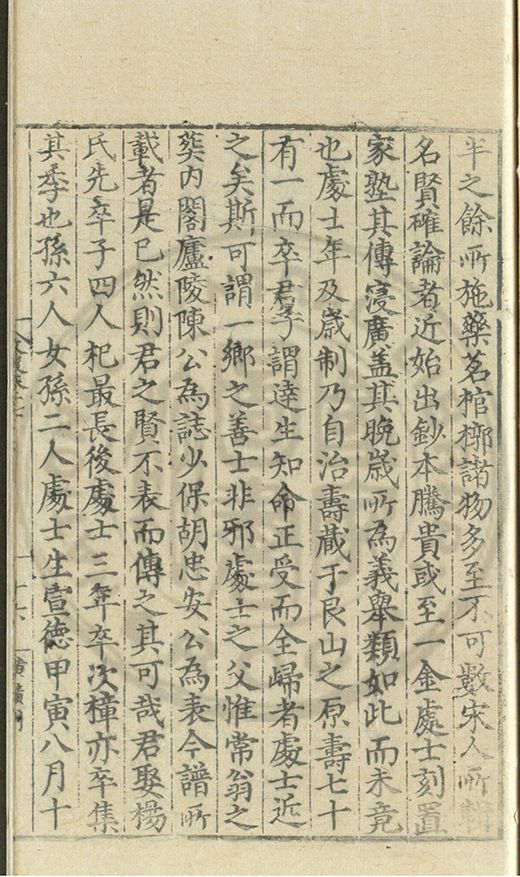 半之餘所施藥茗棺槨諸物多至不可數宋人所輯
名賢確論者近始出鈔本騰貴或至一金處士刻置
家塾其傳寖廣盖其晚歲所為義舉類如此而未竟
也處士年及歲制乃自治壽藏于艮山之原壽七十
有一而卒君子謂達生知命正受而全歸者處士近
之矣斯可謂一鄉之善士非邪處士之父惟常翁之
葬内閣廬陵陳公為誌少保胡忠安公為表今譜所
載者是已然則君之賢不表而傳之其可哉君娶楊
氏先卒子四人杞最長後處士三年卒次樟亦卒集
其季也孫六人女孫二人處士生宣德甲寅八月十